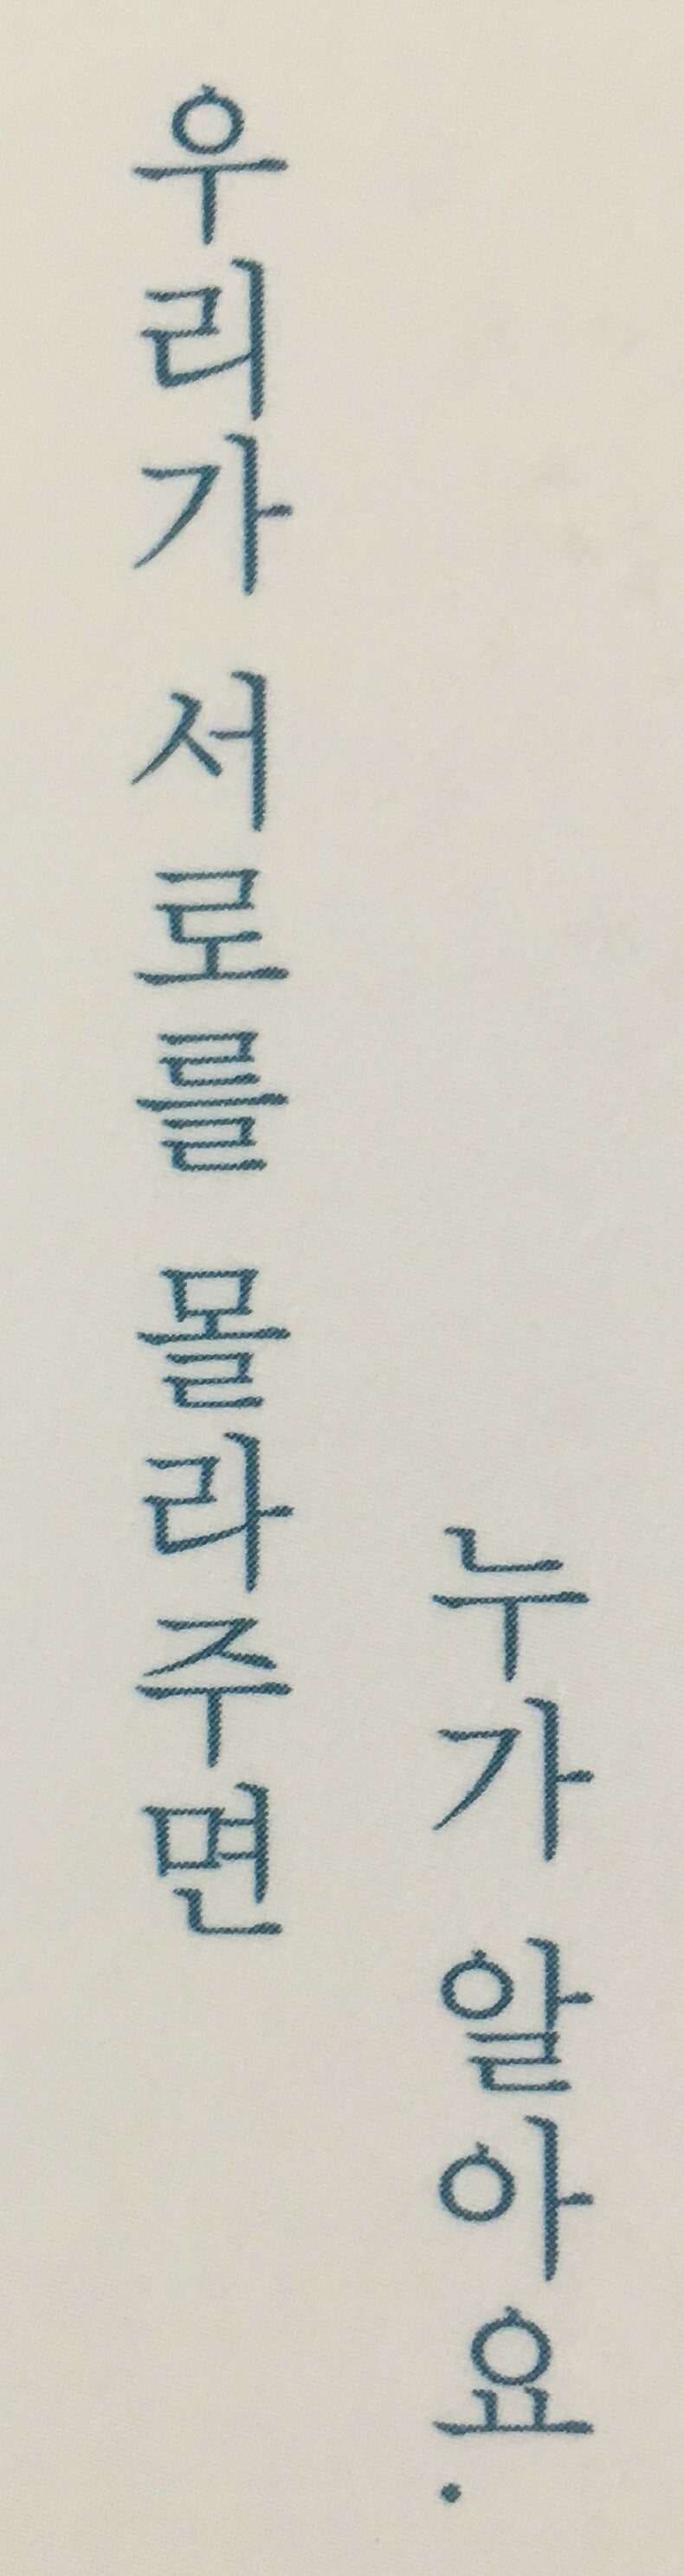 우리가 서로를 몰라주면
누가 알아요.